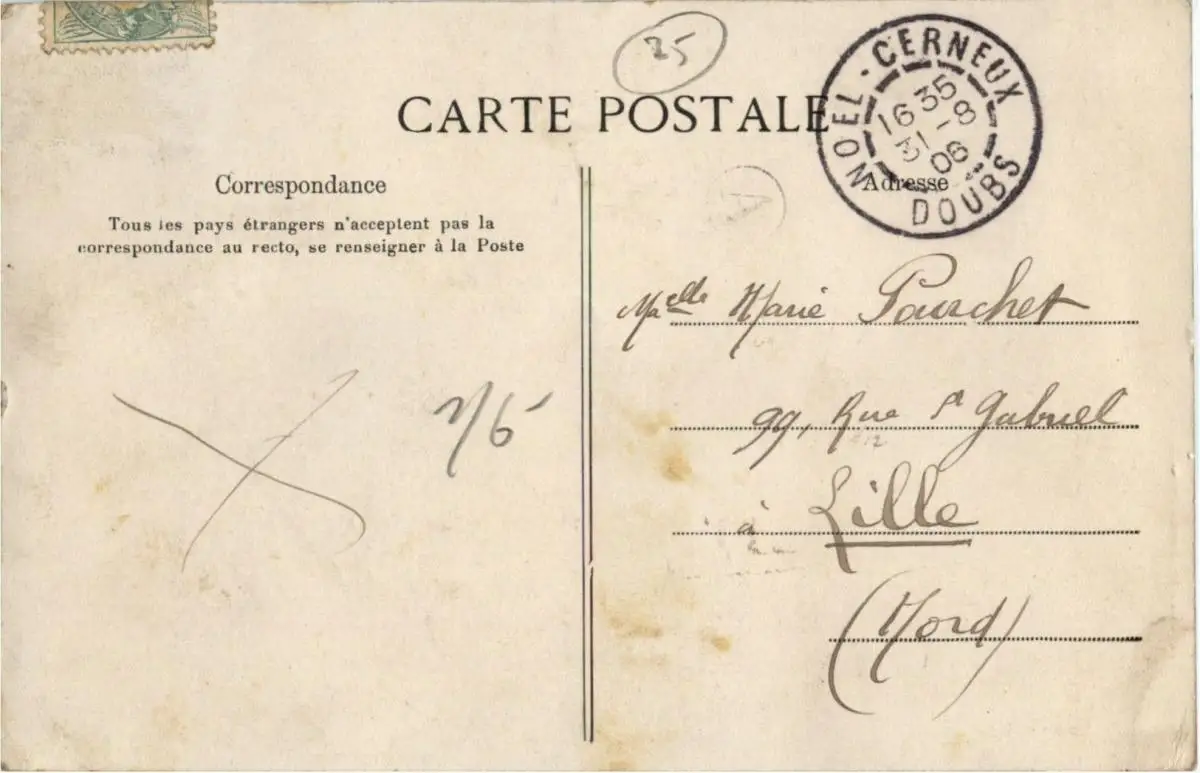 25
CARTE POSTALE
NOEL-CERNEUX
16 35
31-8
06
DOUBS
Correspondance
Adresse
Tous les pays étrangers n'acceptent pas la
correspondance au recto, se renseigner à la Poste
Melle Marie Pourchet
99, Rue St Gabriel
à Lille
(Nord)